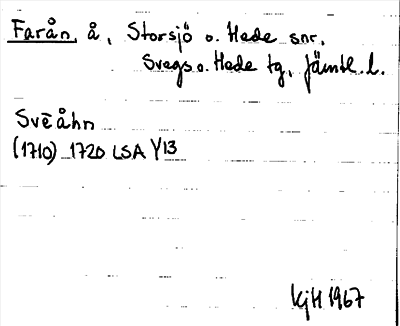 Farån, å, Storsjö o. Hede snr.
Svegs o. Hede tg, Jämtl. l.
Svēåhn
(1710) 1720 LSA Y13
KjH 1967